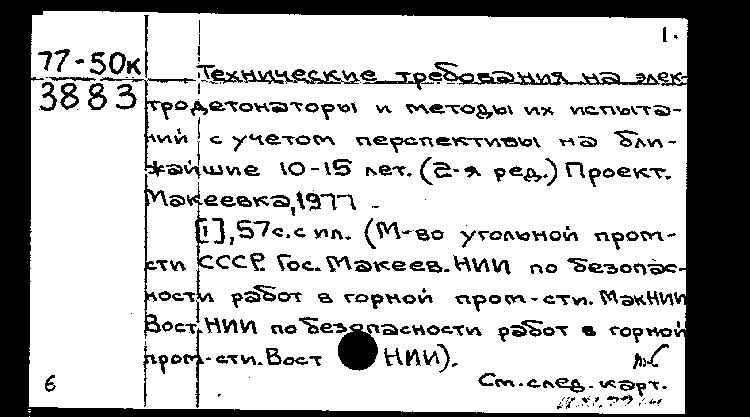 1.
77-50к
3883
Технические требования на элек-
тродетонаторы и методы их испыта-
ний с учетом перспективы на бли-
жайшие 10-15 лет. (2-я ред.) Проект.
Макеевка, 1977 -
[1], 57с. с ил. (М-во угольной пром-
сти СССР. Гос. Макеев. НИИ по безопас-
ности работ в горной пром-сти. МакНИИ
Вост. НИИ по безопасности работ в горной
пром-сти. Вост НИИ).
6
См. след. карт.